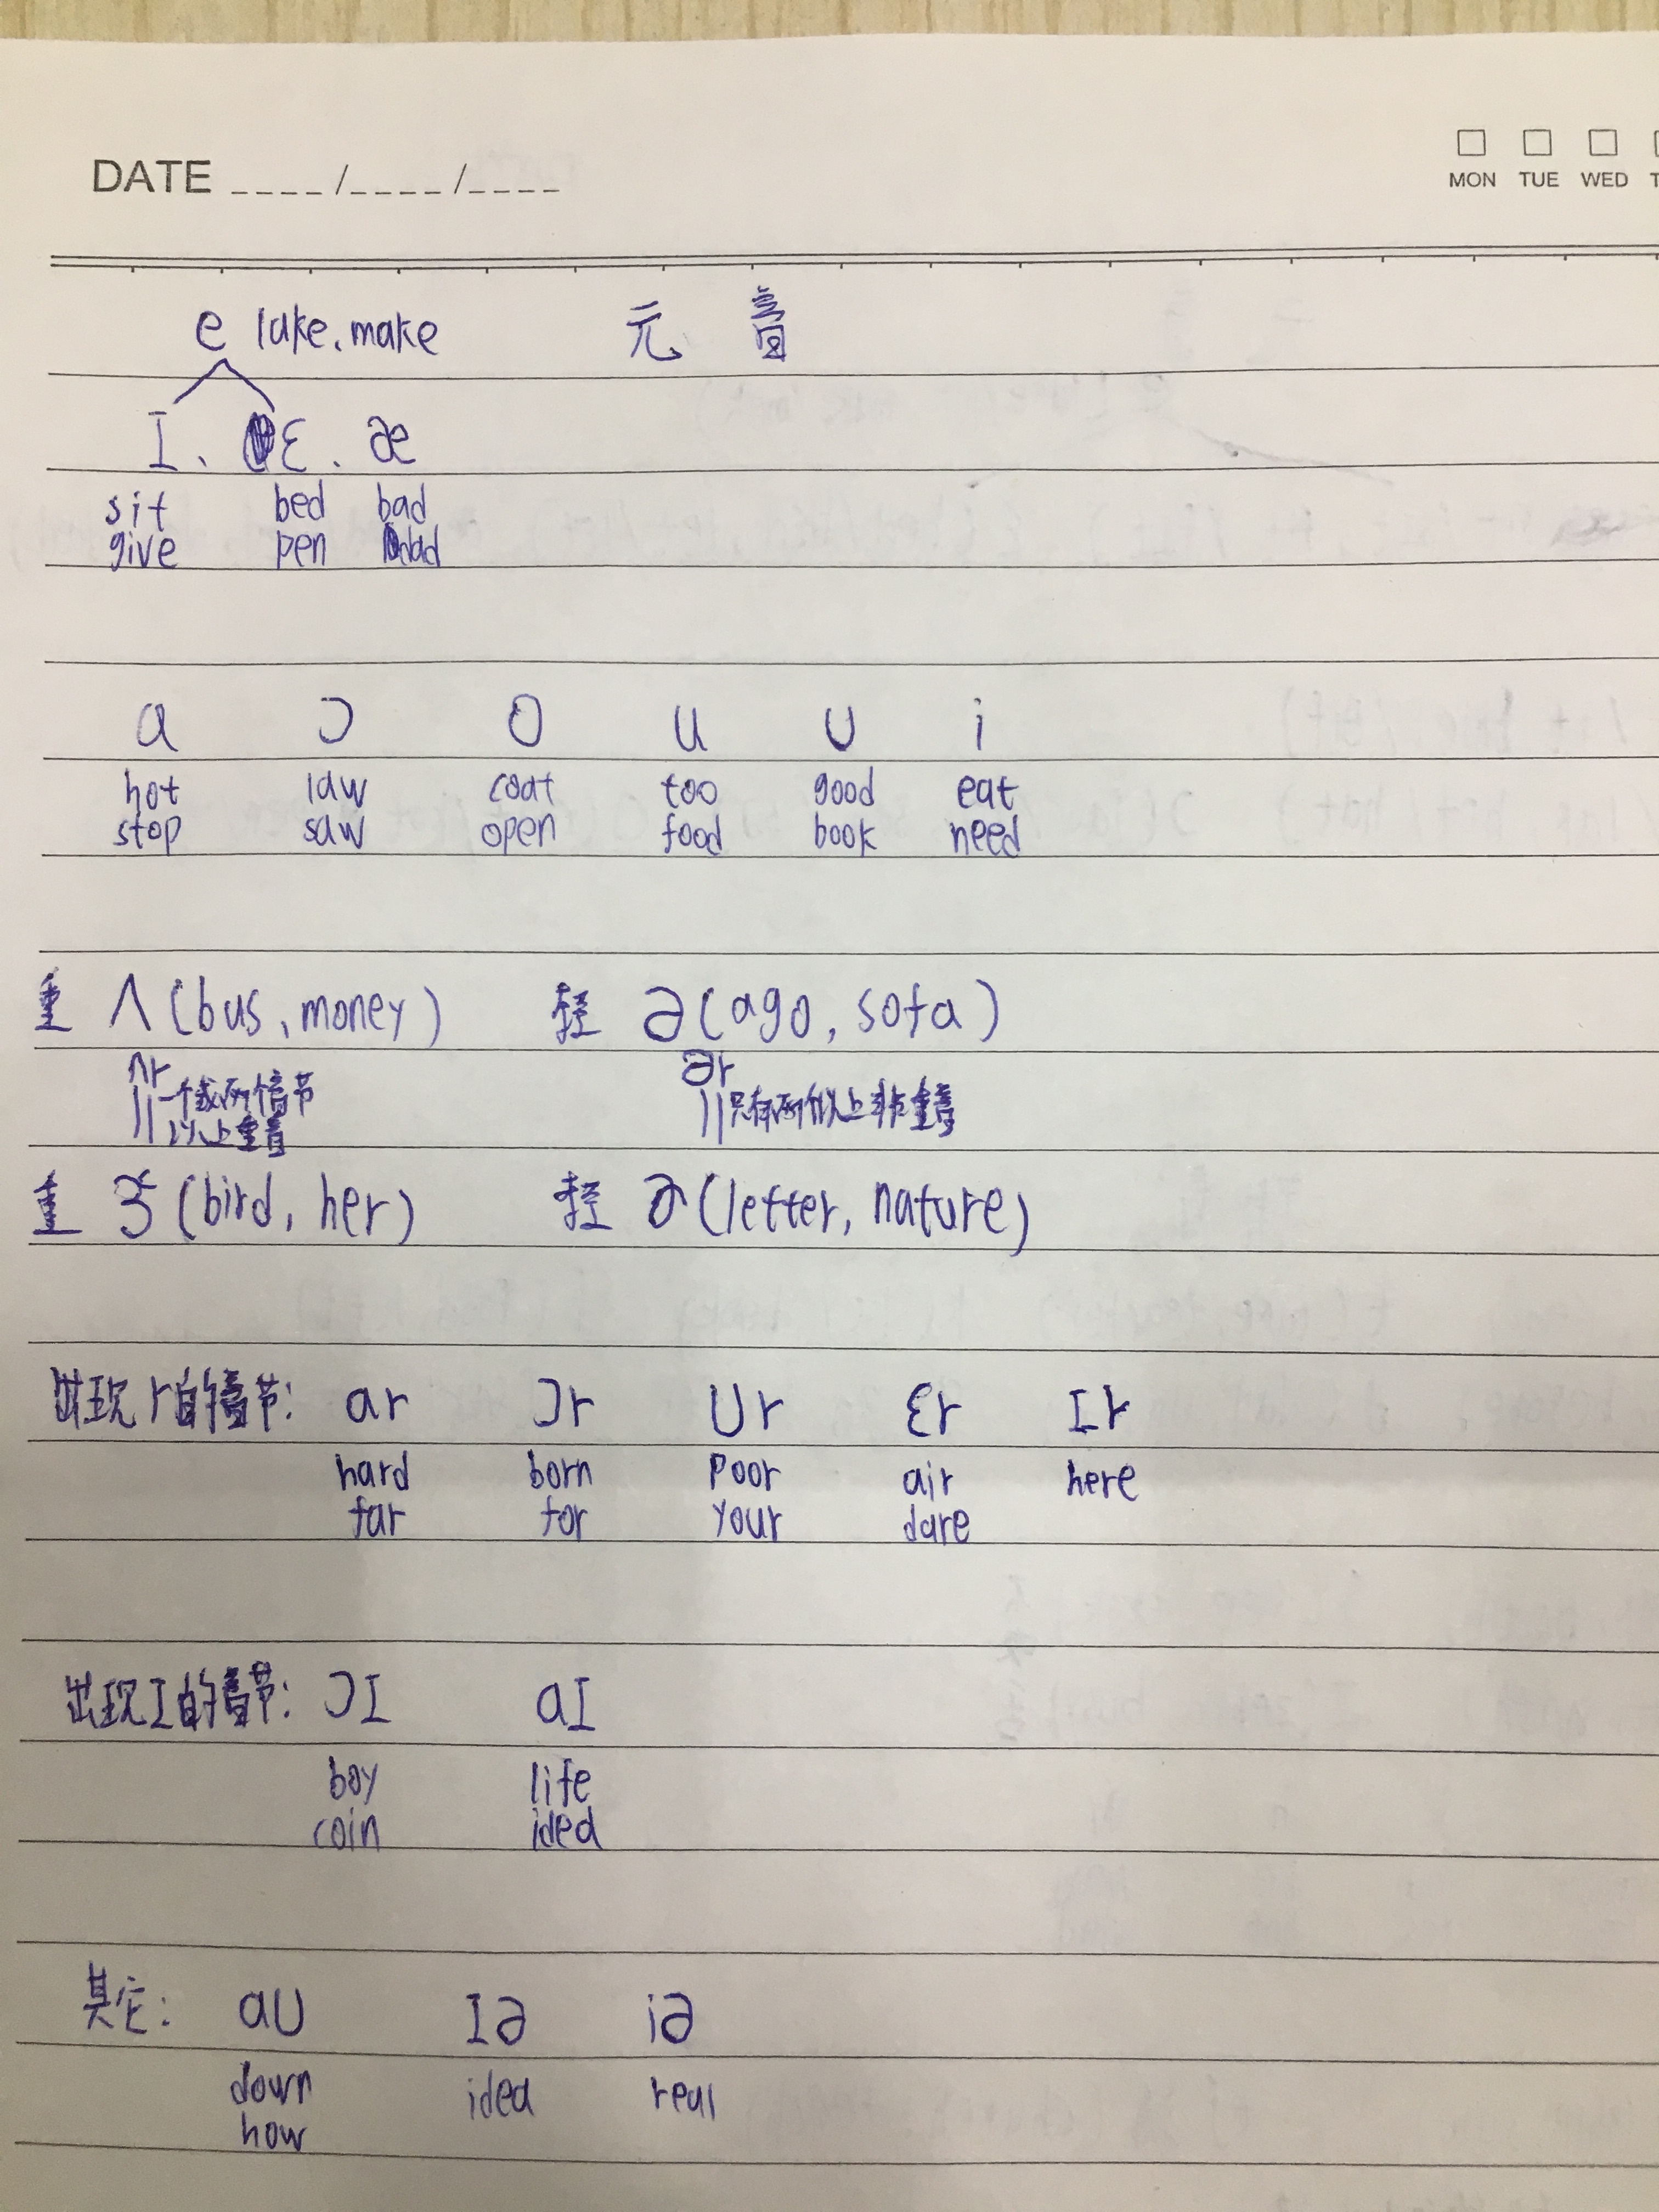 DATE ____/____/____
MON TUE WED T
e lake.make 元 音
I、 ε. æ
sit bed bad
give pen
a ɔ o u ʊ i
hot law coat too good eat
stop saw open food book need
重 ʌ (bus, money) 轻 ə (ago, sofa)
ʌr ər
一个或两个音节 只有两个以上非重音
以上重音
重 ɝ (bird, her) 轻 ɚ (letter, nature)
出现r的音节: ar ɔr ʊr εr Ir
hard born poor air here
far for your dare
出现I的音节: ɔI aI
boy life
coin idea
其它: aʊ Iə iə
down idea real
how